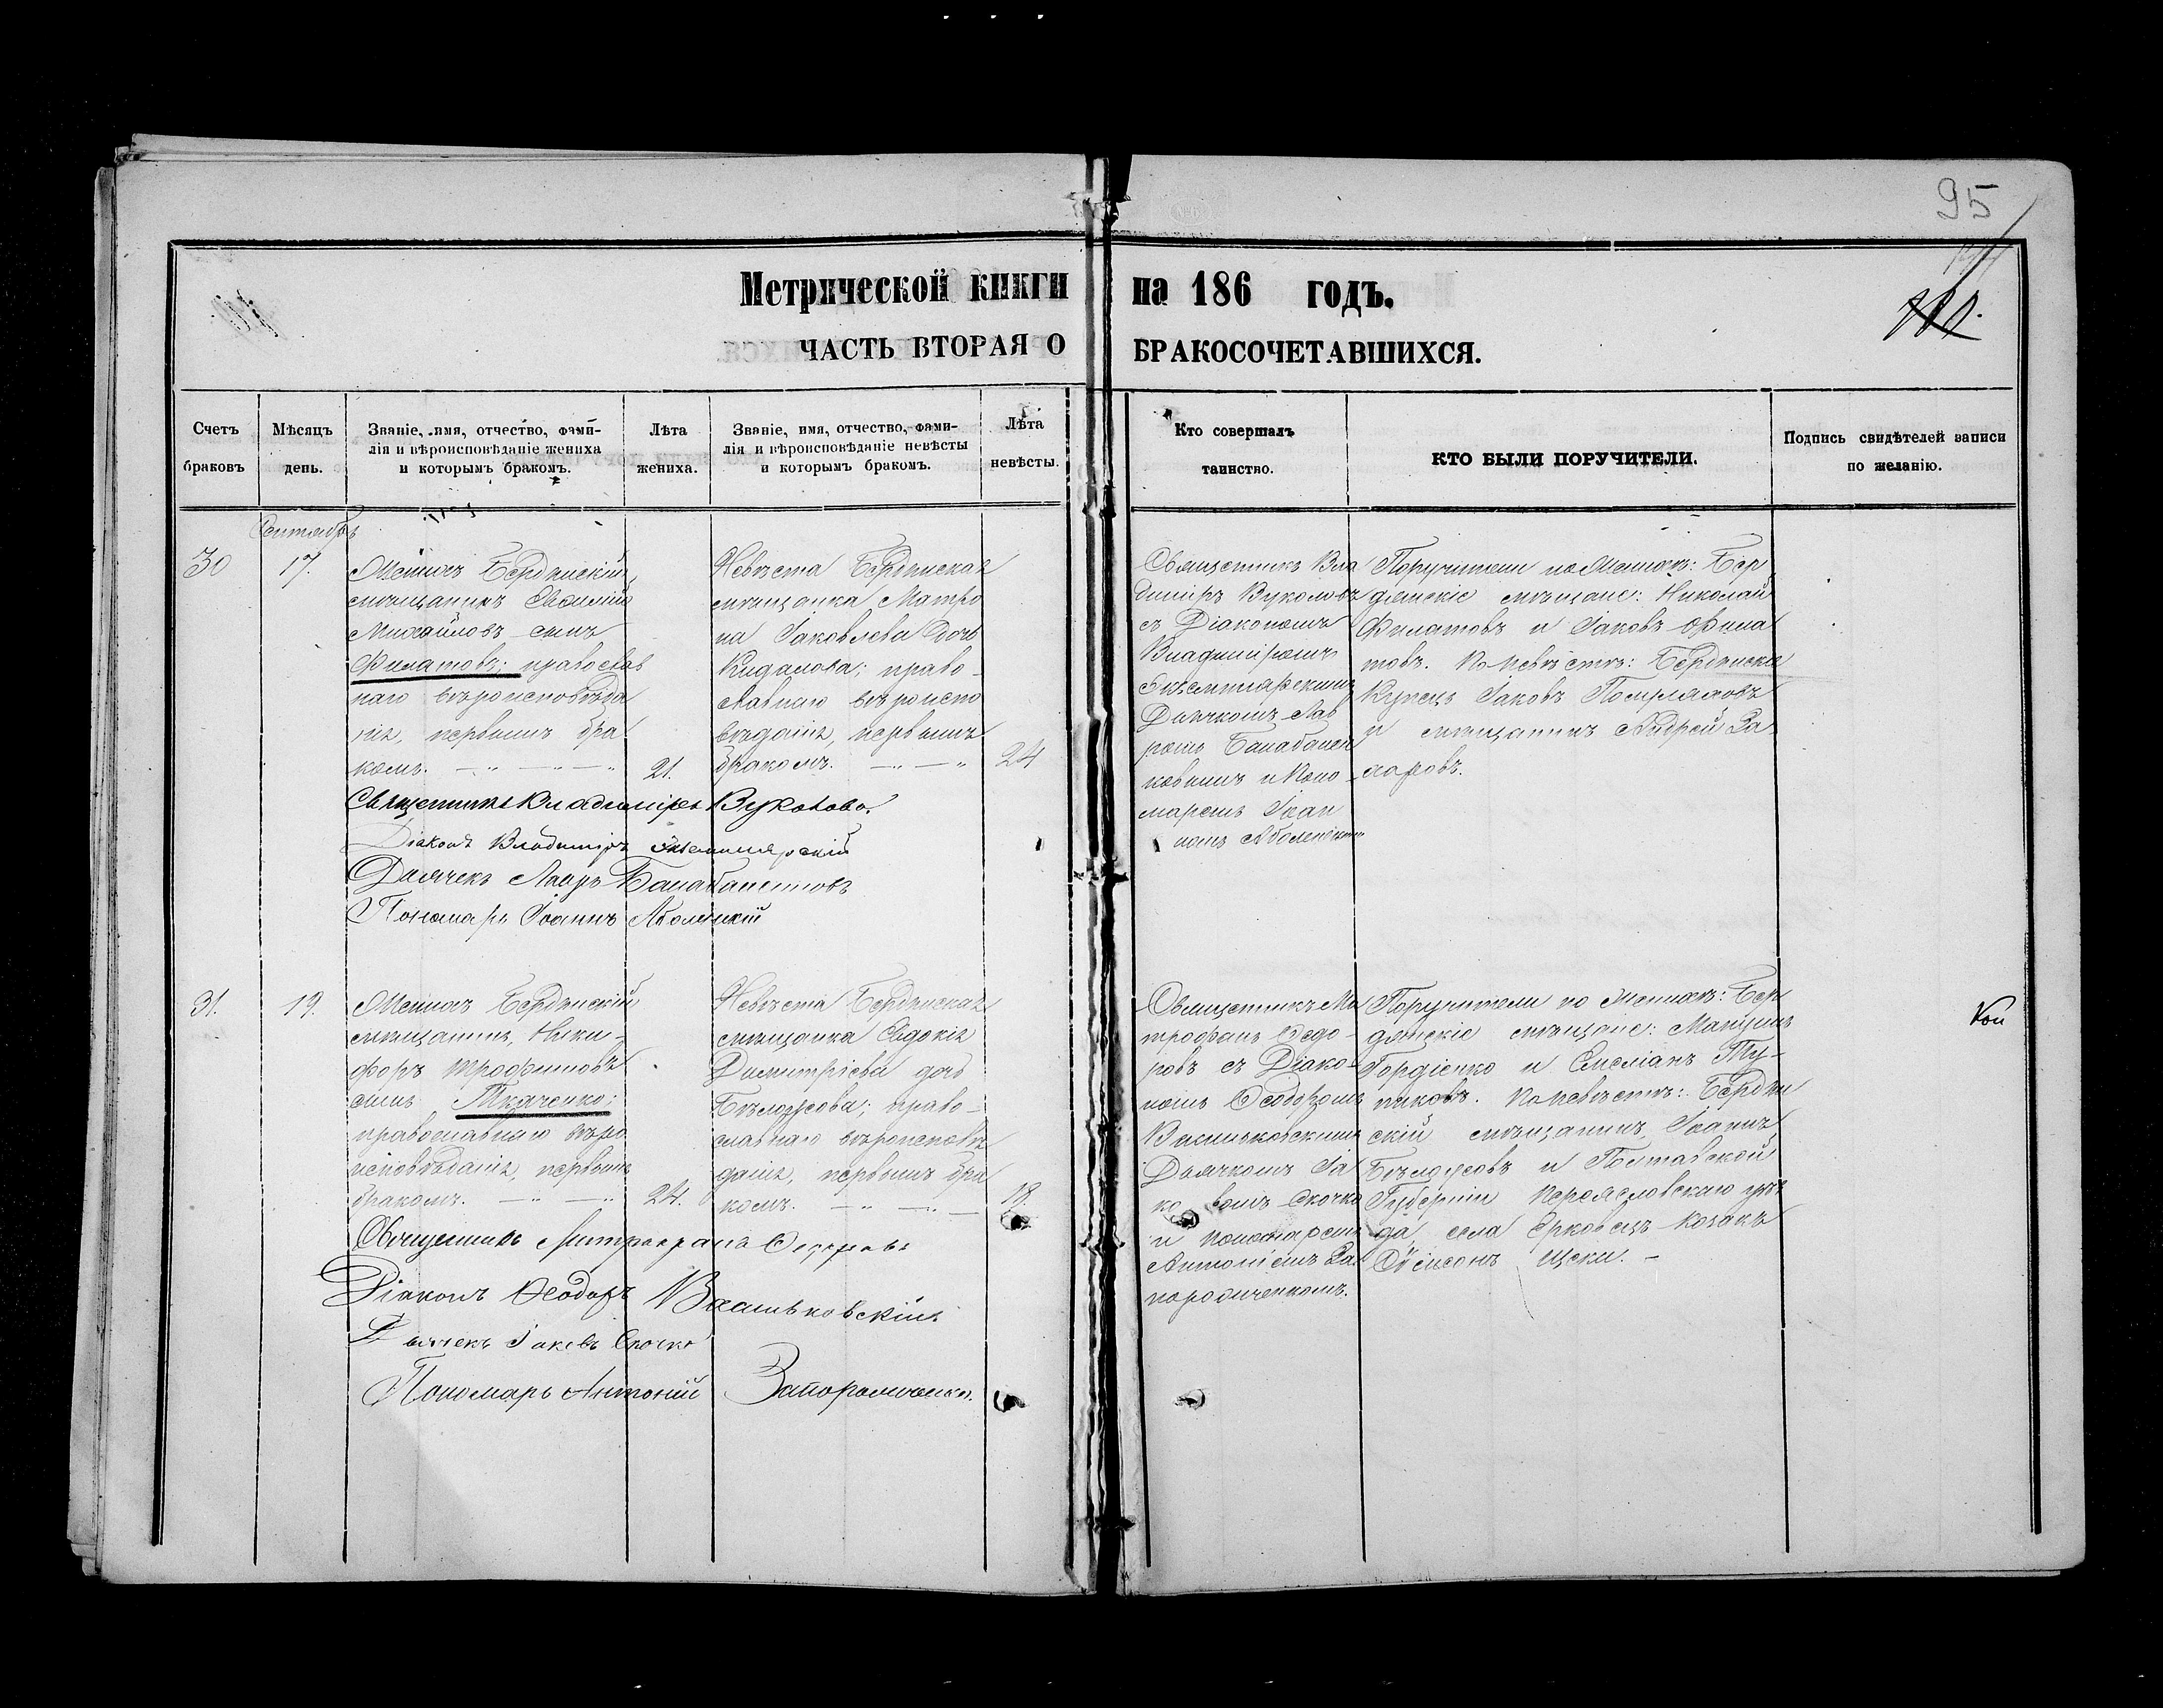 95
Метрической книги на 186 годъ.
ЧАСТЬ ВТОРАЯ О БРАКОСОЧЕТАВШИХСЯ.
Счетъ браковъ
Мѣсяцъ день.
Званіе, имя, отчество, фами-
лія и вѣроисповѣданіе жениха
и которымъ бракомъ.
Лѣта жениха.
Званіе, имя, отчество, фами-
лія и вѣроисповѣданіе невѣсты
и которымъ бракомъ.
Лѣта невѣсты.
Кто совершалъ
таинство.
КТО БЫЛИ ПОРУЧИТЕЛИ.
Подпись свидѣтелей записи
по желанію.
Сентябрь
30
17.
Женихъ Бердянскій
мѣщанинъ
Михайловъ сынъ
Филатовъ; православ
наго вѣроисповѣда
нія, первымъ бра
комъ.
21.
Невѣста Бердянская
мѣщанка Матро
на Іаковлева дочь
Кидалова; право-
славнаго вѣроиспо
вѣданія, первымъ
бракомъ.
24
Священникъ Вла
диміръ Вуколовъ
съ Діакономъ
Владиміромъ
Экземплярскимъ
Дьячкомъ Лав
ромъ
и Поно
маремъ Іоан
номъ Аболенскимъ
Поручители по Женихѣ: Бер
дянскіе мѣщане: Николай
Филатовъ и Іаковъ Фила
товъ. По невѣстѣ: Бердянскій
Купецъ Іаковъ
и мѣщанинъ Андрей За
харовъ.
Священникъ Владиміръ Вуколовъ
Діаконъ Владиміръ Экземплярскій
Дьячекъ Лавръ
Пономарь Іоаннъ Аболенскій
31.
19.
Женихъ Бердянскій
мѣщанинъ, Ники-
форъ Трофимовъ
сынъ Ткаченко;
православнаго вѣро
исповѣданія, первымъ
бракомъ.
24.
Невѣста Бердянская
мѣщанка Евдокія
Димитріева дочь
Бѣлоусова; право-
славнаго вѣроисповѣ
данія, первымъ бра
комъ.
18.
Священникъ Ми
трофанъ Федо-
ровъ съ Діако-
номъ Феодоромъ
Васильковскимъ
Дьячкомъ Іа
ковомъ Скочко
и пономаремъ
Антоніемъ За
пороженкомъ.
Поручители по Женихѣ: Бер
дянскіе мѣщане: Максимъ
Гордіенко и Емеліанъ Ту-
пиковъ. По невѣстѣ: Бердян
скій мѣщанинъ, Іоаннъ
Бѣлоусовъ и Полтавской
Губерніи Переяславскаго уѣз
да, села Ерковецъ козакъ
Сѵмеонъ
Священникъ Митрофанъ Федоровъ
Діаконъ Феодоръ Васильковскій
Дьячекъ Іаковъ Скочко
Пономарь Антоній Запороженко.